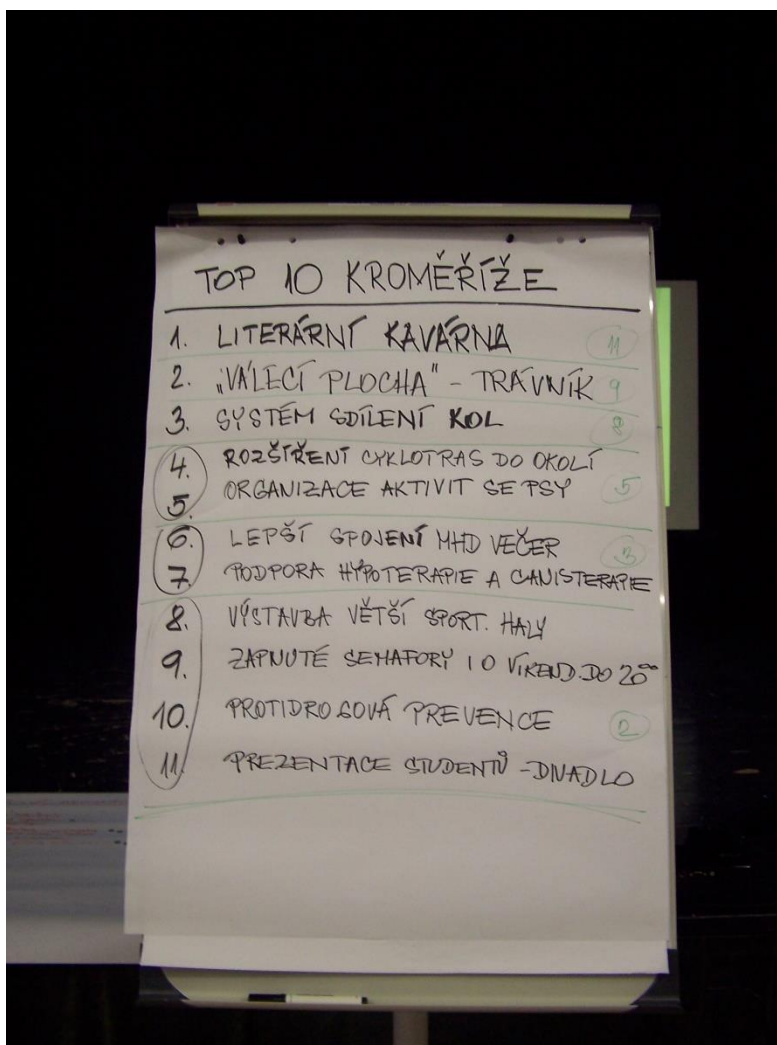 TOP 10 KROMĚŘÍŽE
1. LITERÁRNÍ KAVÁRNA 11
2. „VÁLECÍ PLOCHA" - TRÁVNÍK 9
3. SYSTÉM SDÍLENÍ KOL 8
4. ROZŠÍŘENÍ CYKLOTRAS DO OKOLÍ
5. ORGANIZACE AKTIVIT SE PSY 5
6. LEPŠÍ SPOJENÍ MHD VEČER 3
7. PODPORA HYPOTERAPIE A CANISTERAPIE
8. VÝSTAVBA VĚTŠÍ SPORT. HALY
9. ZAPNUTÉ SEMAFORY I O VÍKEND. DO 20⁰⁰
10. PROTIDROGOVÁ PREVENCE 2
11. PREZENTACE STUDENTŮ - DIVADLO